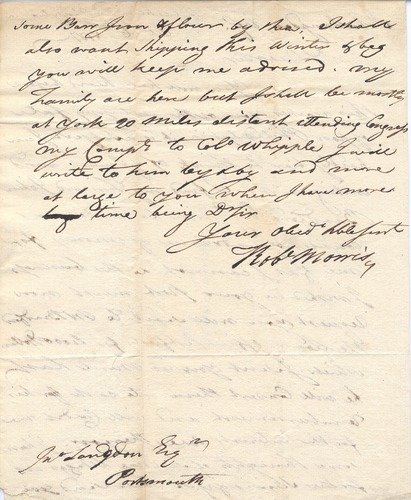 some Barr Iron & flour by them. I shall
also want Shipping this Winter & beg
you will keep me advised. my
Family are here but I shall be mostly
at York 20 Miles distant attending Congress
my Compts to Colo Whipple I will
write to him by & by and more
at large to you when I have more
time being Dr Sir
Your Obedt hble servt
Robt Morris
Jno Langdon Esqr
Portsmouth